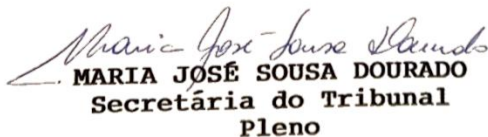 Maria José Sousa Dourado
MARIA JOSÉ SOUSA DOURADO
Secretária do Tribunal
Pleno